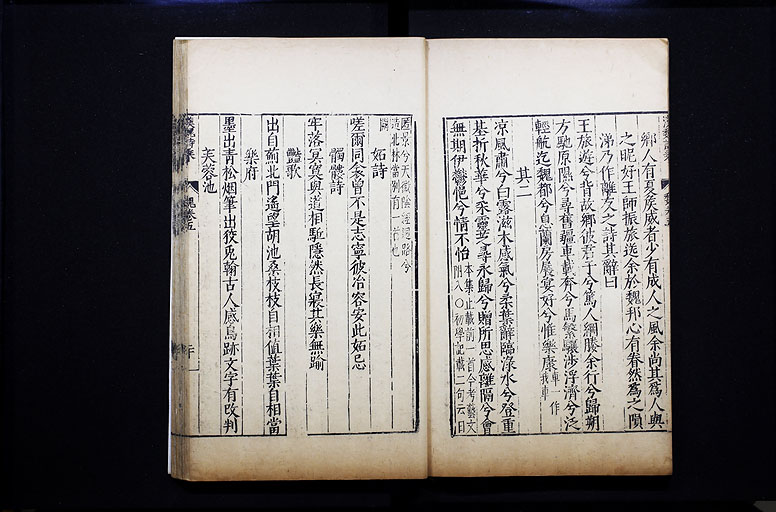 鄉人有夏侯威者少有成人之風余尚其爲人與
之昵好王師振旅送余於魏邦心有眷然爲之隕
涕乃作離友之詩其辭曰
王旅遊兮背故鄉彼君子兮篤人綱媵余行兮歸朔
方馳原隰兮尋舊疆車載奔兮馬繁驤涉浮濟兮泛
輕航迄魏都兮息蘭房展宴好兮惟樂康
其二
凉風肅兮白露滋木感氣兮柔葉辭臨淥水兮登重
基折秋華兮采靈芝尋永歸兮贈所思感離隔兮會
無期伊鬱悒兮情不怡 本集止載前一首今考藝文
附入〇初學記載二句云日
匿景兮天微陰經迴路兮
造北林當別有一首也
妬詩
嗟爾同衾曾不是志寧彼冶容安此妬忌
髑髏詩
牢落冥寞與道相駈隱然長寢其樂無踰
豔歌
出自薊北門遙望胡池桑枝枝自相值葉葉自相當
樂府
墨出青松烟筆出狡兎翰古人感鳥跡文字有改判
芙蓉池
魏卷五